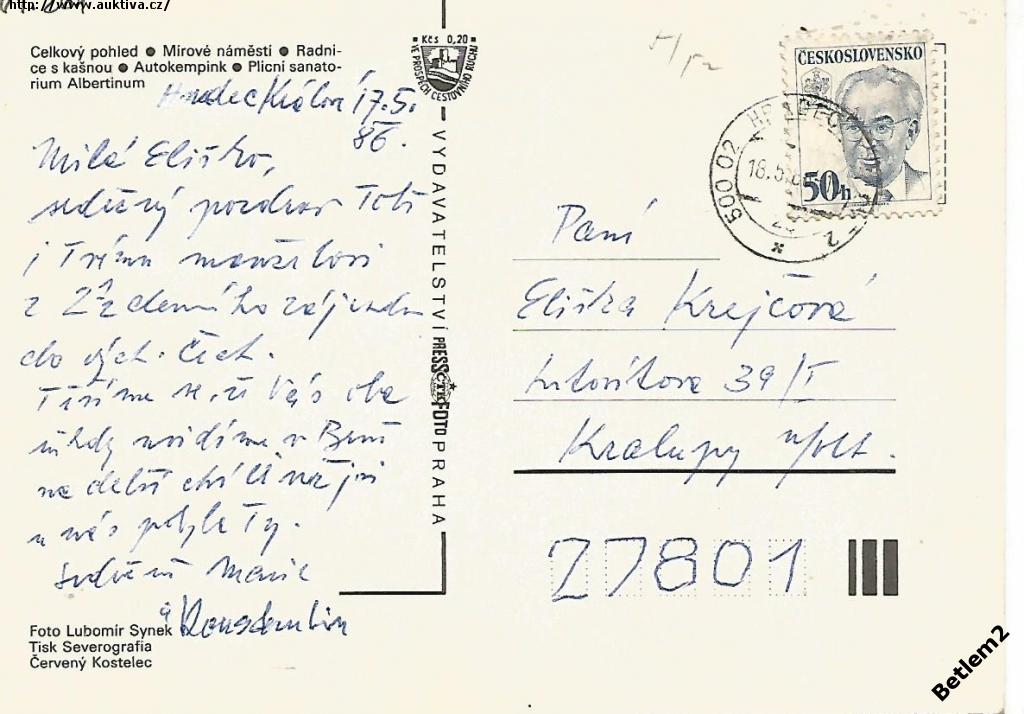 http://www.auktiva.cz/
Celkový pohled ● Mírové náměstí ● Radni-
ce s kašnou ● Autokempink ● Plicní sanato-
rium Albertinum
Kčs 0,20
VE PROSPĚCH CESTOVNÍHO RUCHU
Hradec Králové 17.5.
86.
Milá Eliško,
srdečný pozdrav Tobě
i Tvému manželovi
z denního zájezdu
do vých. Čech.
Těšíme se, že Vás oba
někdy uvidíme v Brně
na delší chvíli než jsi
u nás pobyla Ty.
Srdečně Marie
a
Foto Lubomír Synek
Tisk Severografia
Červený Kostelec
VYDAVATELSTVÍ PRESSFOTO PRAHA
ČTK
ČESKOSLOVENSKO
50h
500 02 HRADEC
18.5.
2
Paní
Eliška Krejčová
39/I
Kralupy n/Vlt.
27801
Betlem2